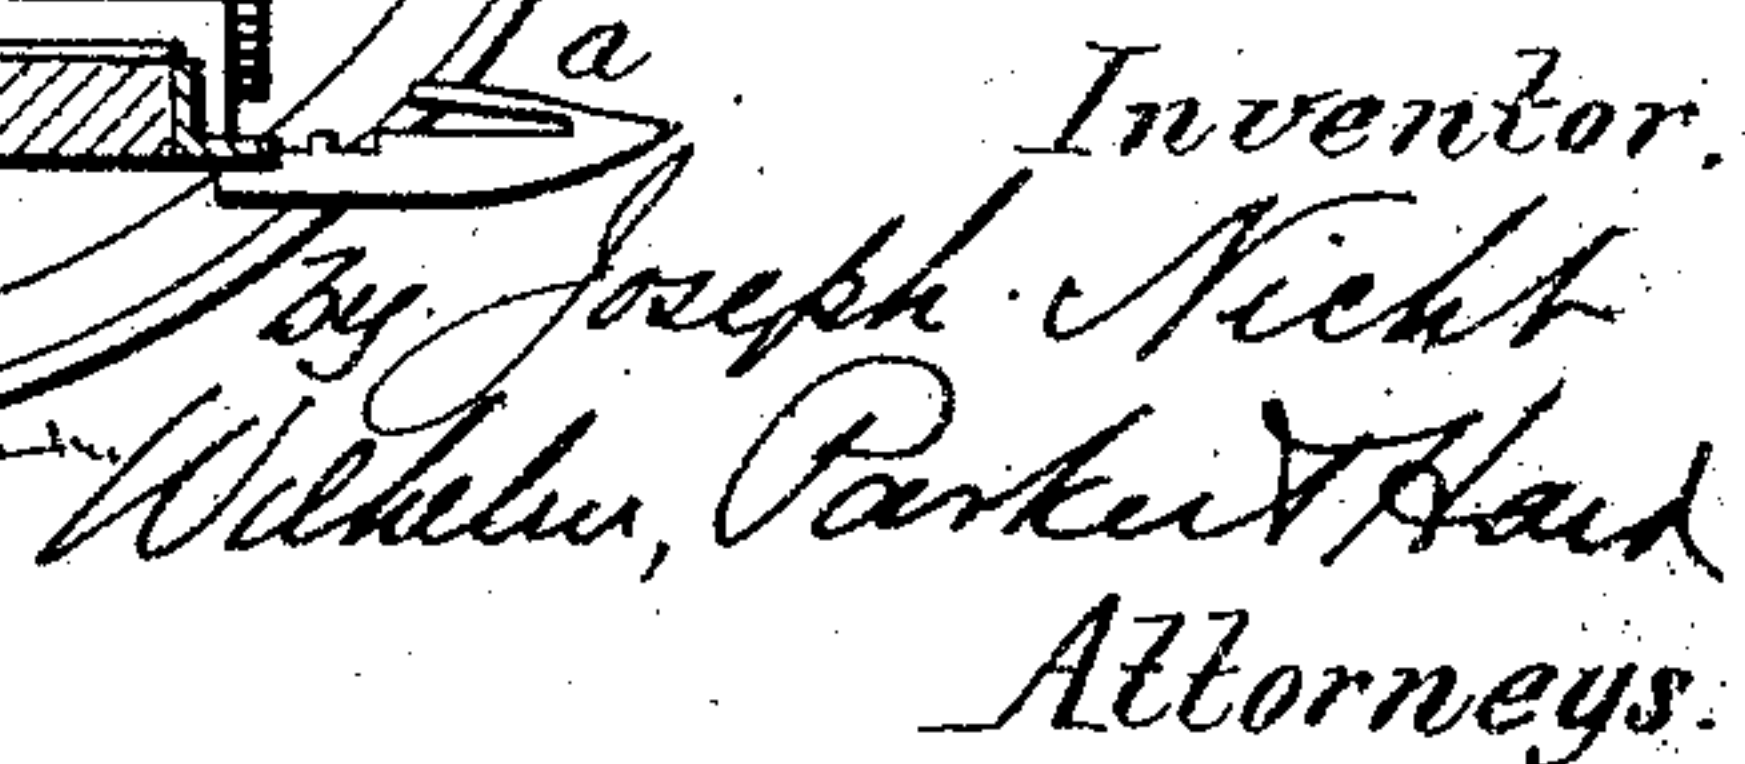 a
Inventor.
By Joseph Nicht
Wilhelm, Parker & Hard
Attorneys.